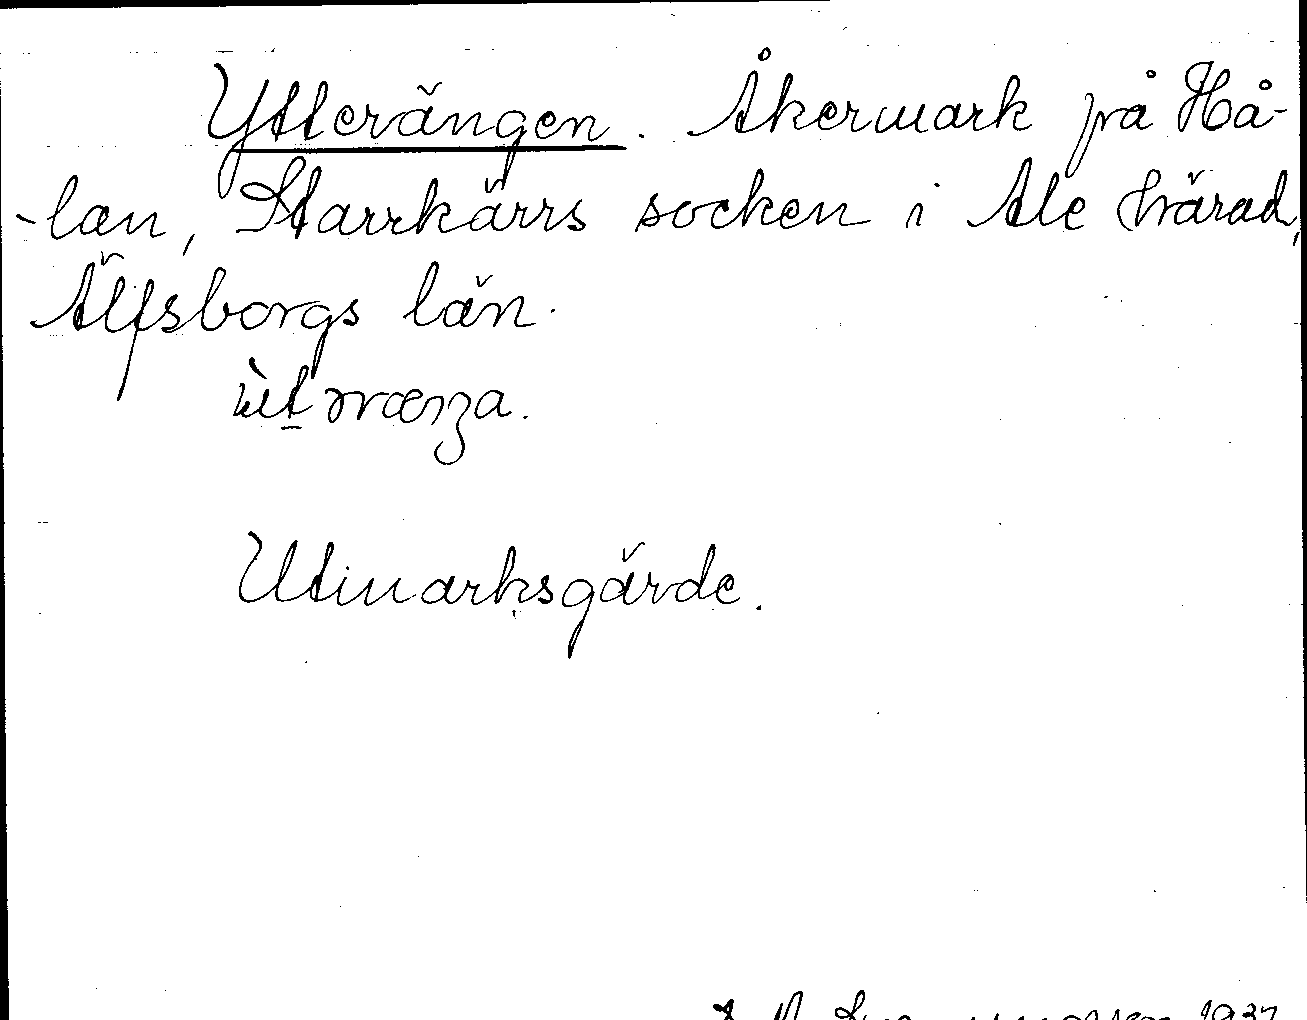 Ytterängen. Åkermark på Hå-
-lan, Starrkärrs socken i Ale härad,
Älfsborgs län.
Utmarksgärde.
1937